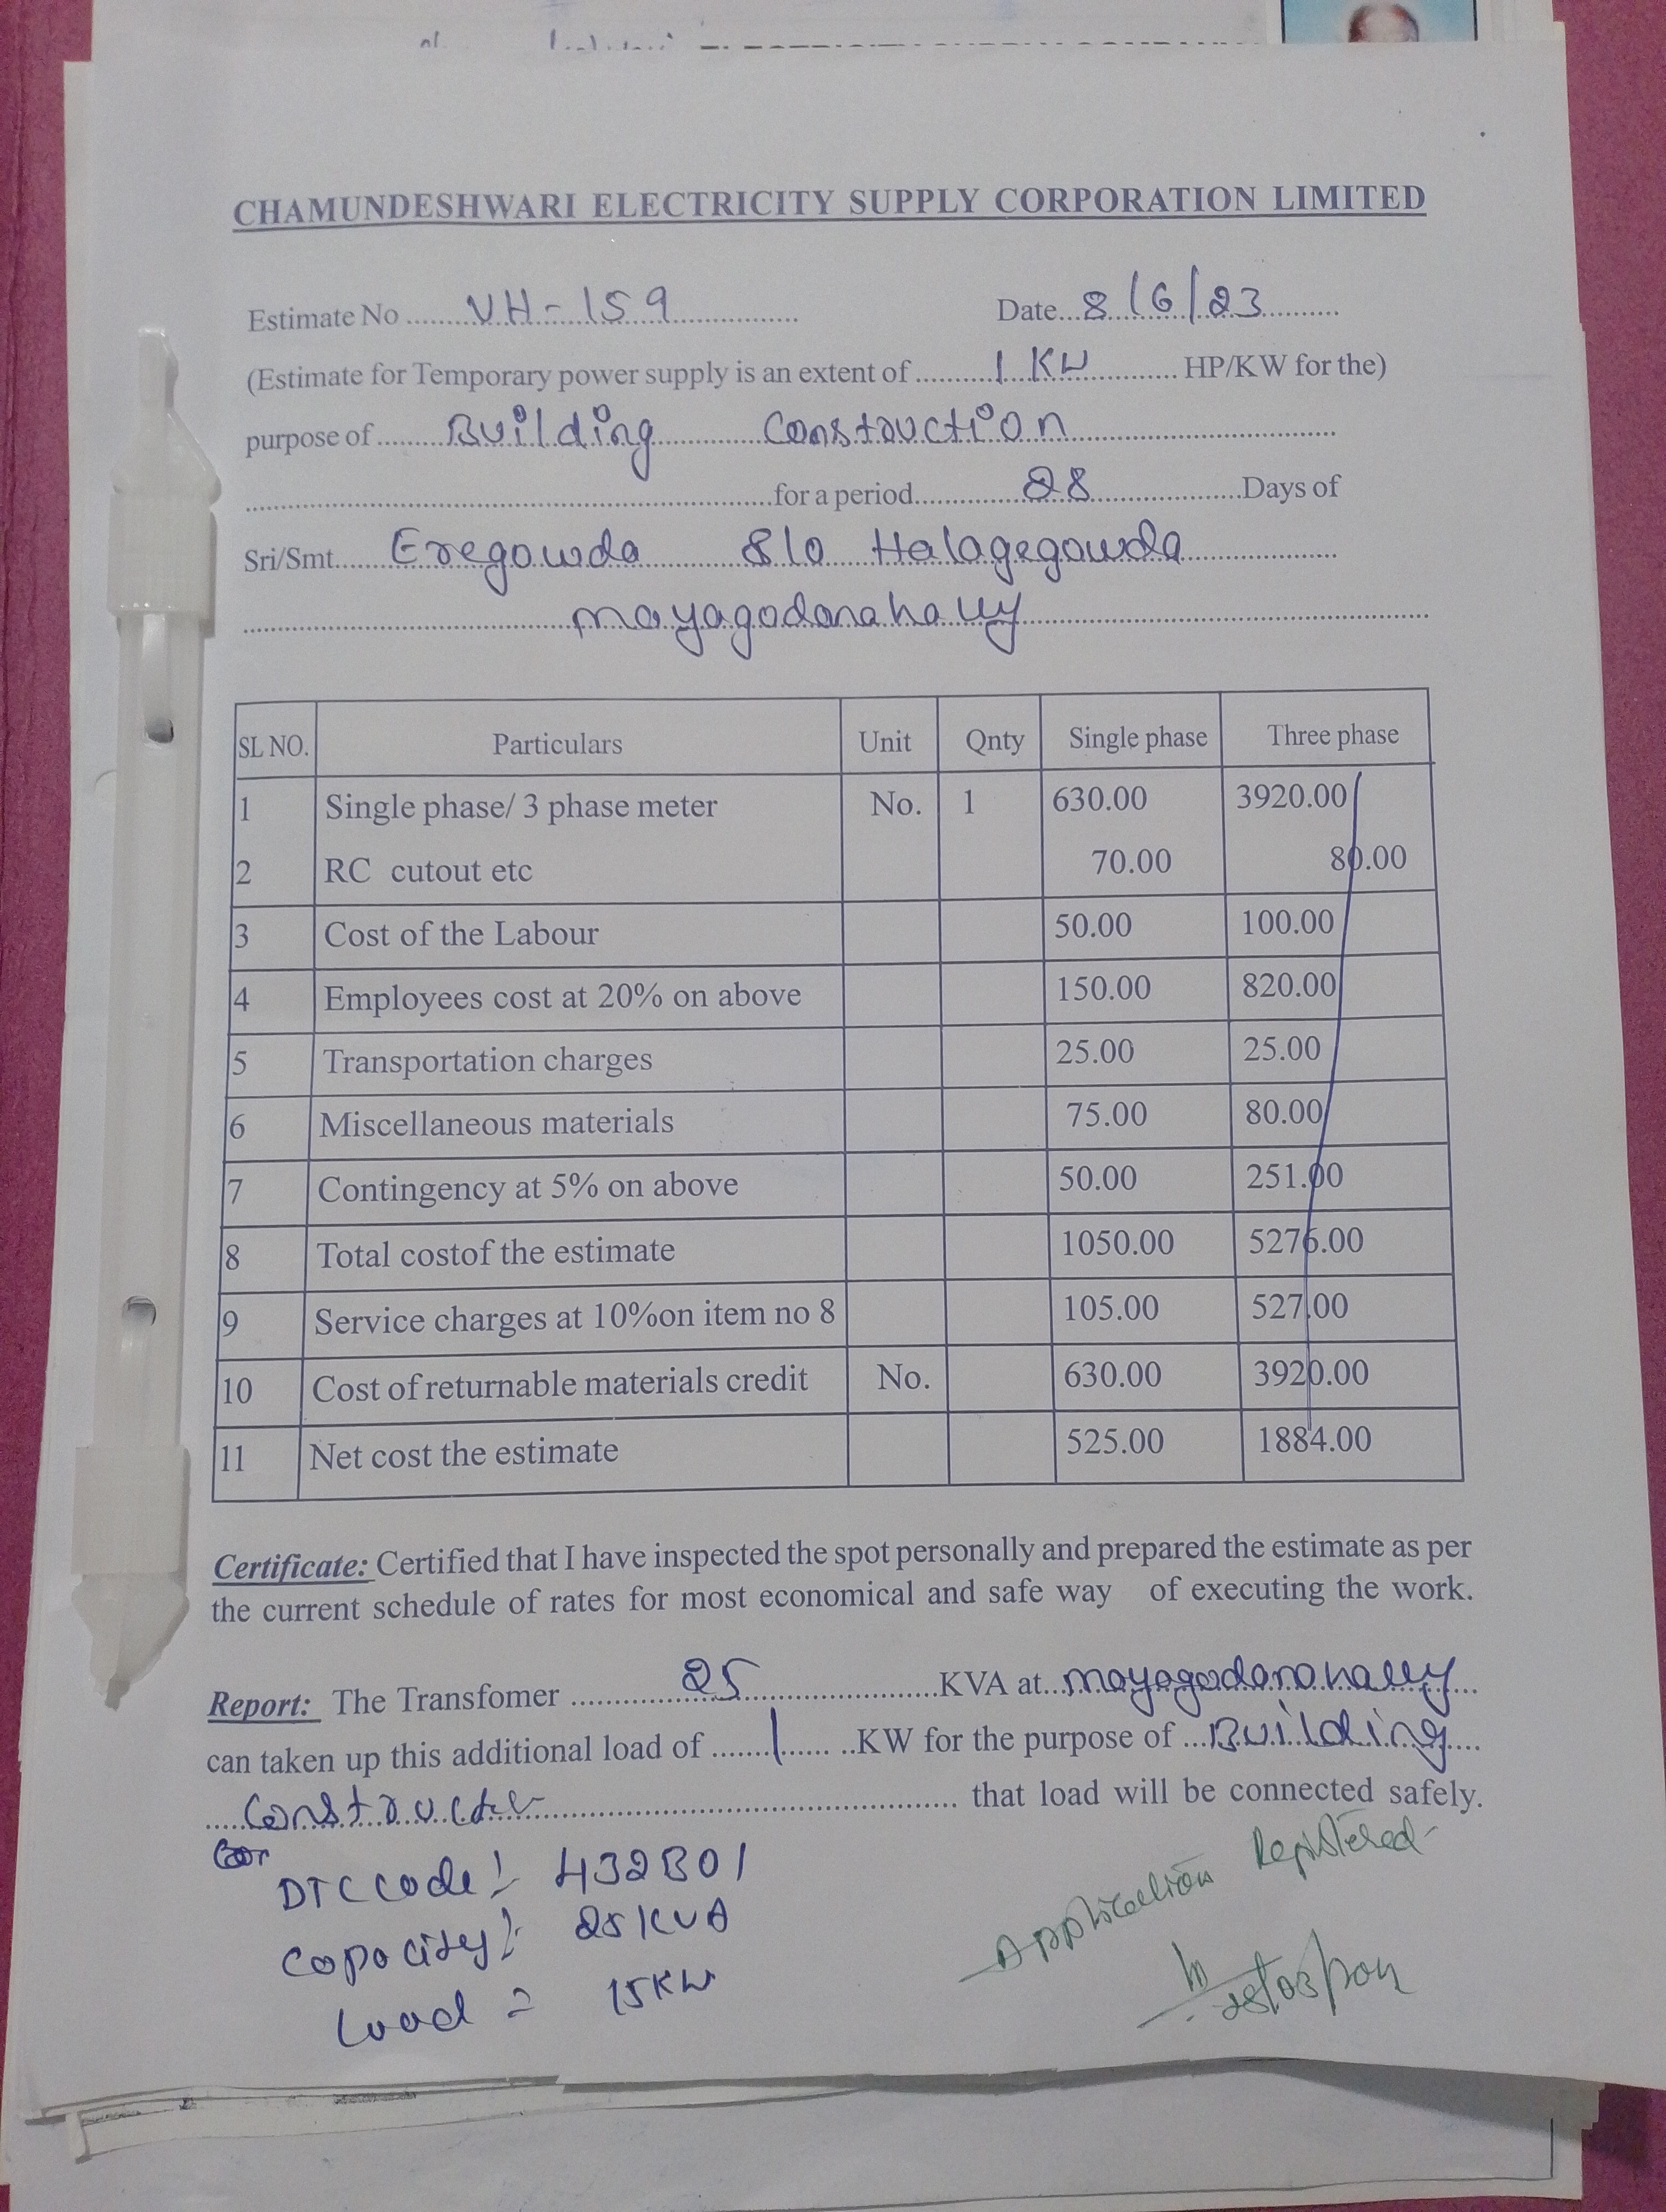 CHAMUNDESHWARI ELECTRICITY SUPPLY CORPORATION LIMITED
Estimate No ........ VH-159 ................ Date... 8/6/23 ..........
(Estimate for Temporary power supply is an extent of .......... 1 KW ............. HP/KW for the)
purpose of ........ Building ............ Construction ..............................
......................................................for a period............... 28 .................Days of
Sri/Smt...... Eregowda S/o Halagegowda ..................
mayagodanahally
SL NO. Particulars Unit Qnty Single phase Three phase
1 Single phase/ 3 phase meter No. 1 630.00 3920.00
2 RC cutout etc 70.00 80.00
3 Cost of the Labour 50.00 100.00
4 Employees cost at 20% on above 150.00 820.00
5 Transportation charges 25.00 25.00
6 Miscellaneous materials 75.00 80.00
7 Contingency at 5% on above 50.00 251.00
8 Total costof the estimate 1050.00 5276.00
9 Service charges at 10%on item no 8 105.00 527.00
10 Cost of returnable materials credit No. 630.00 3920.00
11 Net cost the estimate 525.00 1884.00
Certificate: Certified that I have inspected the spot personally and prepared the estimate as per
the current schedule of rates for most economical and safe way of executing the work.
Report: The Transfomer ............... 25 ......................KVA at... mayagodanahally ...
can taken up this additional load of ....... 1 ...... ..KW for the purpose of ... Building ....
..... Constructi ............................................. that load will be connected safely.
DTC code:- 432B01
Capacity:- 25KVA
Load = 15KW
Application Registered